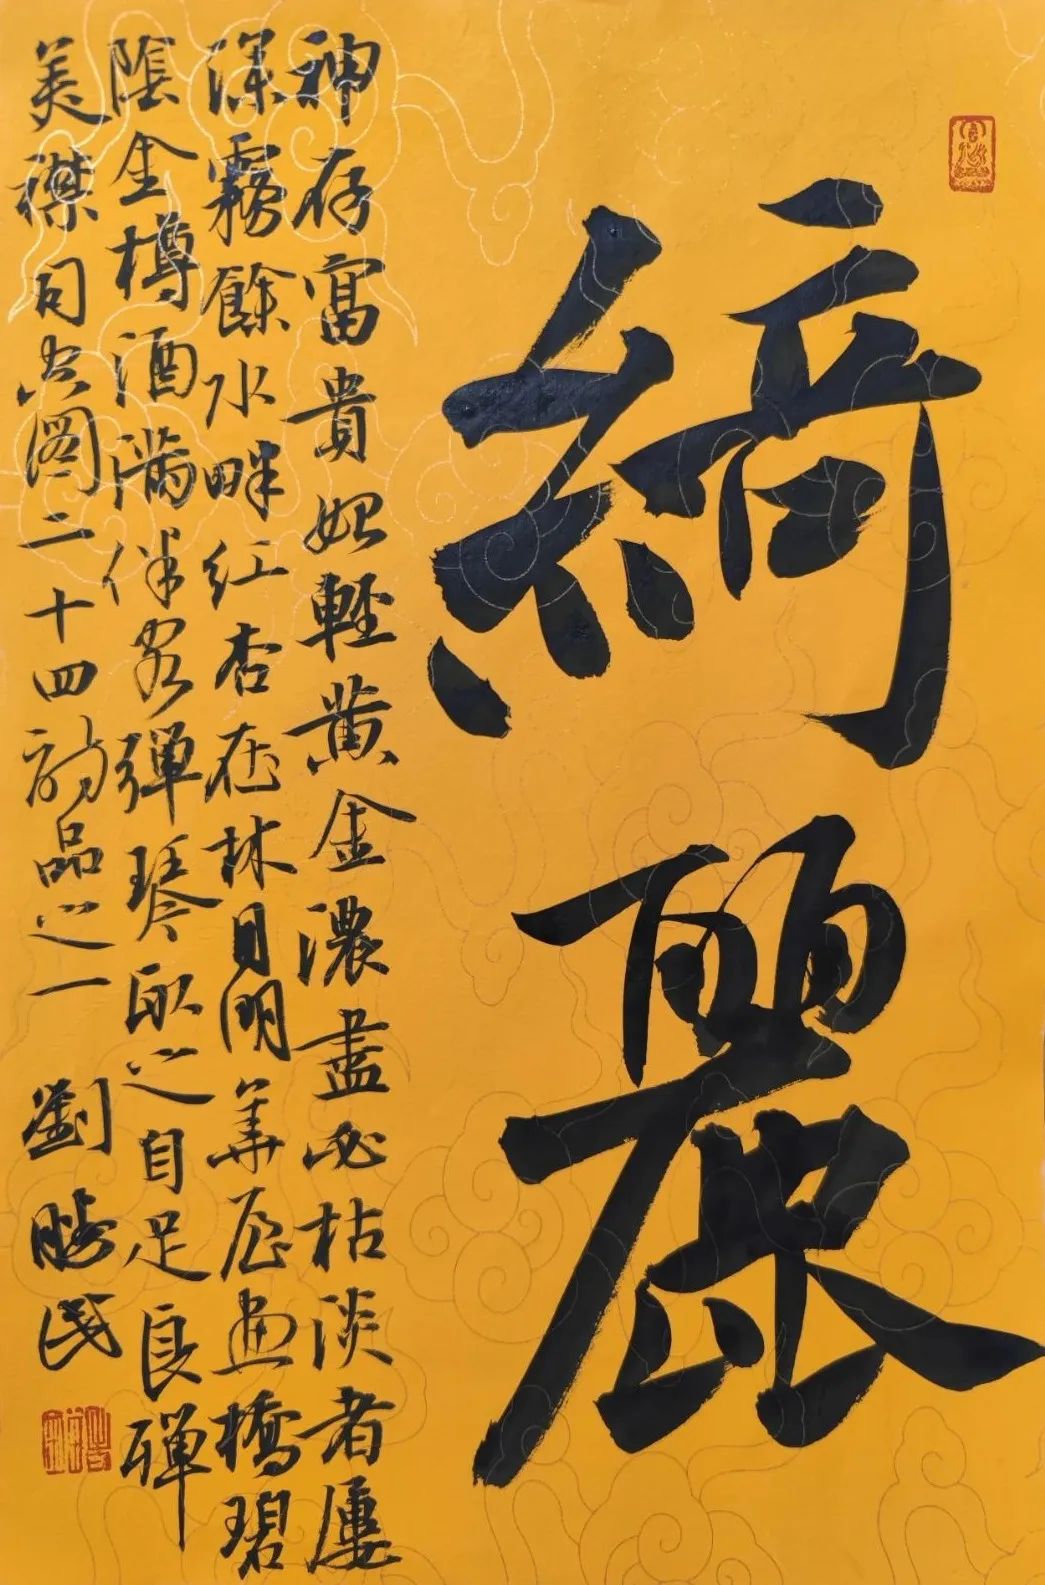 綺麗
神存富貴始輕黃金濃盡必枯淡者屢
深霧餘水畔紅杏在林月明華屋畫橋碧
陰金樽酒滿伴客彈琴取之自足良殫
美襟司空圖二十四詩品之一 劉勝民